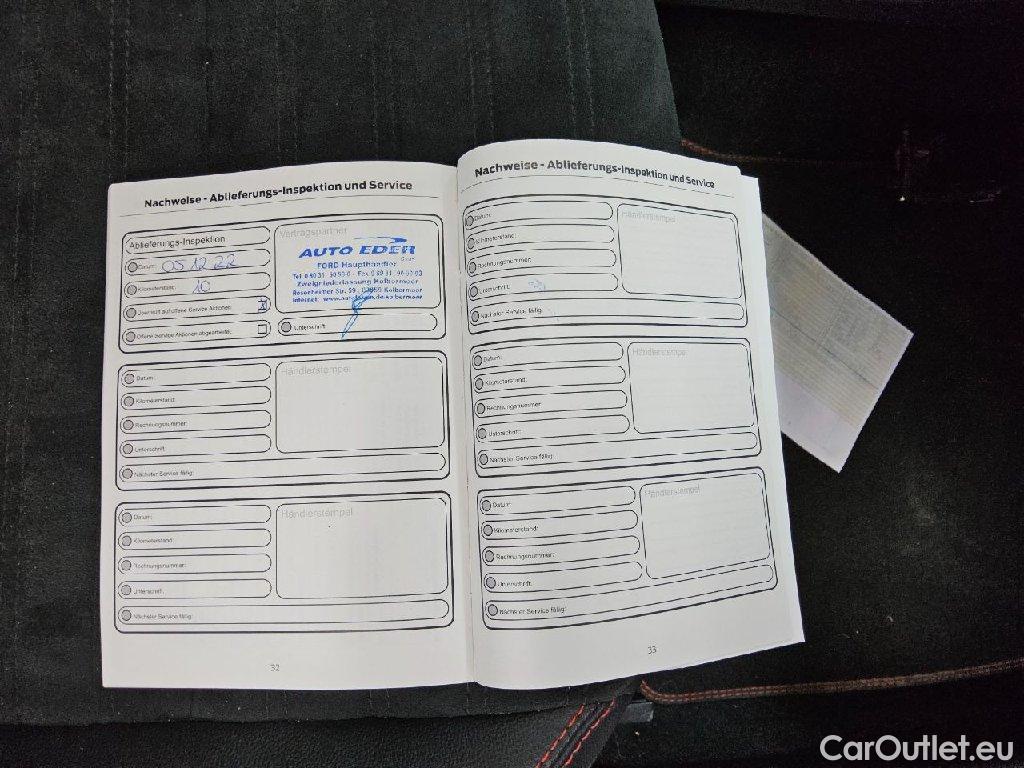 Nachweise - Ablieferungs-Inspektion und Service
Ablieferungs-Inspektion
Datum: 05 12 22
Kilometerstand: 10
Überprüft auf offene Service Aktionen:
Offene Service Aktionen abgearbeitet:
Vertragspartner
AUTO EDER
GmbH
FORD Haupthändler
Zweigniederlassung Kolbermoor
Unterschrift:
Datum:
Kilometerstand:
Rechnungsnummer:
Unterschrift:
Nächster Service fällig:
Händlerstempel
Datum:
Kilometerstand:
Rechnungsnummer:
Unterschrift:
Nächster Service fällig:
Händlerstempel
32
Nachweise - Ablieferungs-Inspektion und Service
Datum:
Kilometerstand:
Rechnungsnummer:
Unterschrift:
Nächster Service fällig:
Händlerstempel
Datum:
Kilometerstand:
Rechnungsnummer:
Unterschrift:
Nächster Service fällig:
Händlerstempel
Datum:
Kilometerstand:
Rechnungsnummer:
Unterschrift:
Nächster Service fällig:
Händlerstempel
33
CarOutlet.eu